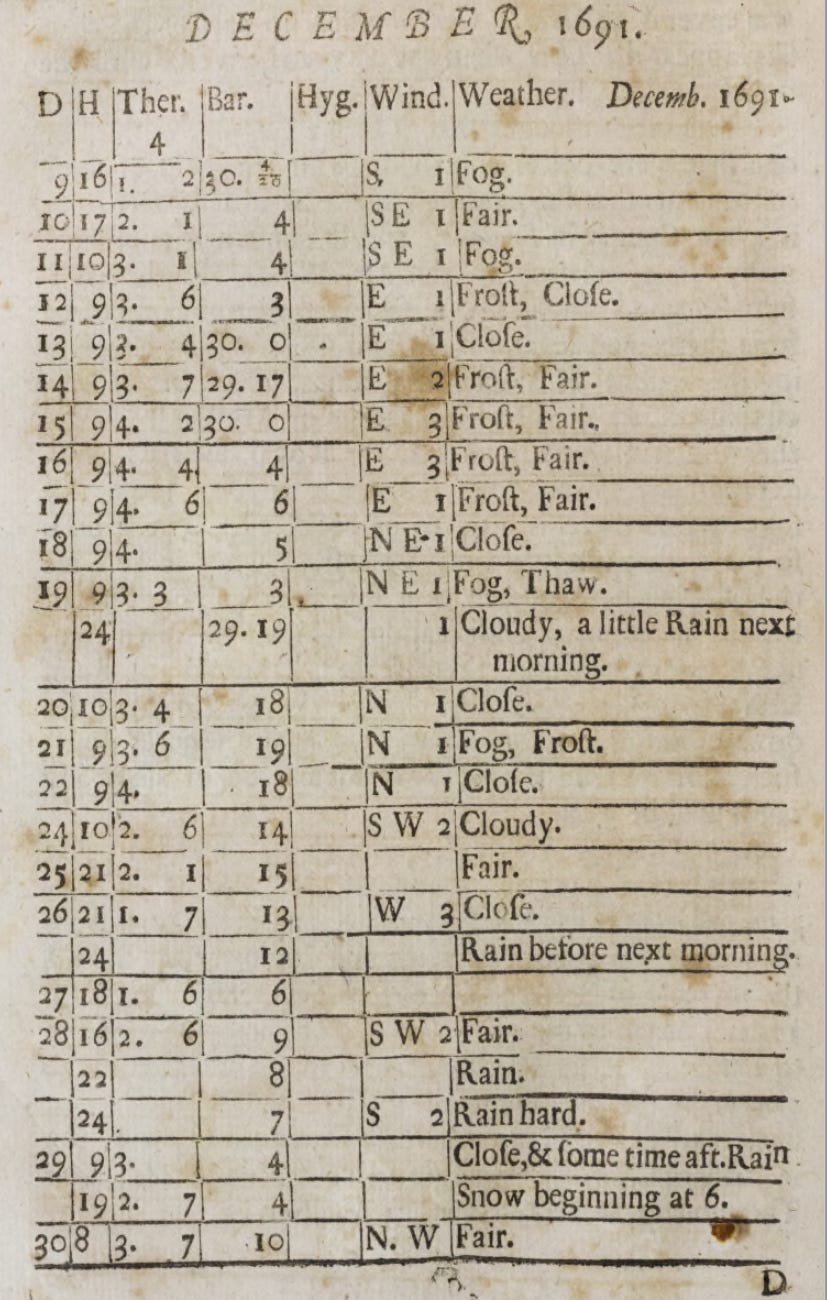 DECEMBER, 1691.
D H Ther. Bar. Hyg. Wind. Weather. Decemb. 1691.
4
9 16 1. 2 30. 4/20 S, 1 Fog.
10 17 2. 1 4 S E 1 Fair.
11 10 3. 1 4 S E 1 Fog.
12 9 3. 6 3 E 1 Froſt, Cloſe.
13 9 3. 4 30. 0 E 1 Cloſe.
14 9 3. 7 29. 17 E 2 Froſt, Fair.
15 9 4. 2 30. 0 E 3 Froſt, Fair.
16 9 4. 4 4 E 3 Froſt, Fair.
17 9 4. 6 6 E 1 Froſt, Fair.
18 9 4. 5 N E 1 Cloſe.
19 9 3. 3 3 N E 1 Fog, Thaw.
24 29. 19 1 Cloudy, a little Rain next
morning.
20 10 3. 4 18 N 1 Cloſe.
21 9 3. 6 19 N 1 Fog, Froſt.
22 9 4. 18 N 1 Cloſe.
24 10 2. 6 14 S W 2 Cloudy.
25 21 2. 1 15 Fair.
26 21 1. 7 13 W 3 Cloſe.
24 12 Rain before next morning.
27 18 1. 6 6
28 16 2. 6 9 S W 2 Fair.
22 8 Rain.
24 7 S 2 Rain hard.
29 9 3. 4 Cloſe,& ſome time aft.Rain
19 2. 7 4 Snow beginning at 6.
30 8 3. 7 10 N. W Fair.
D